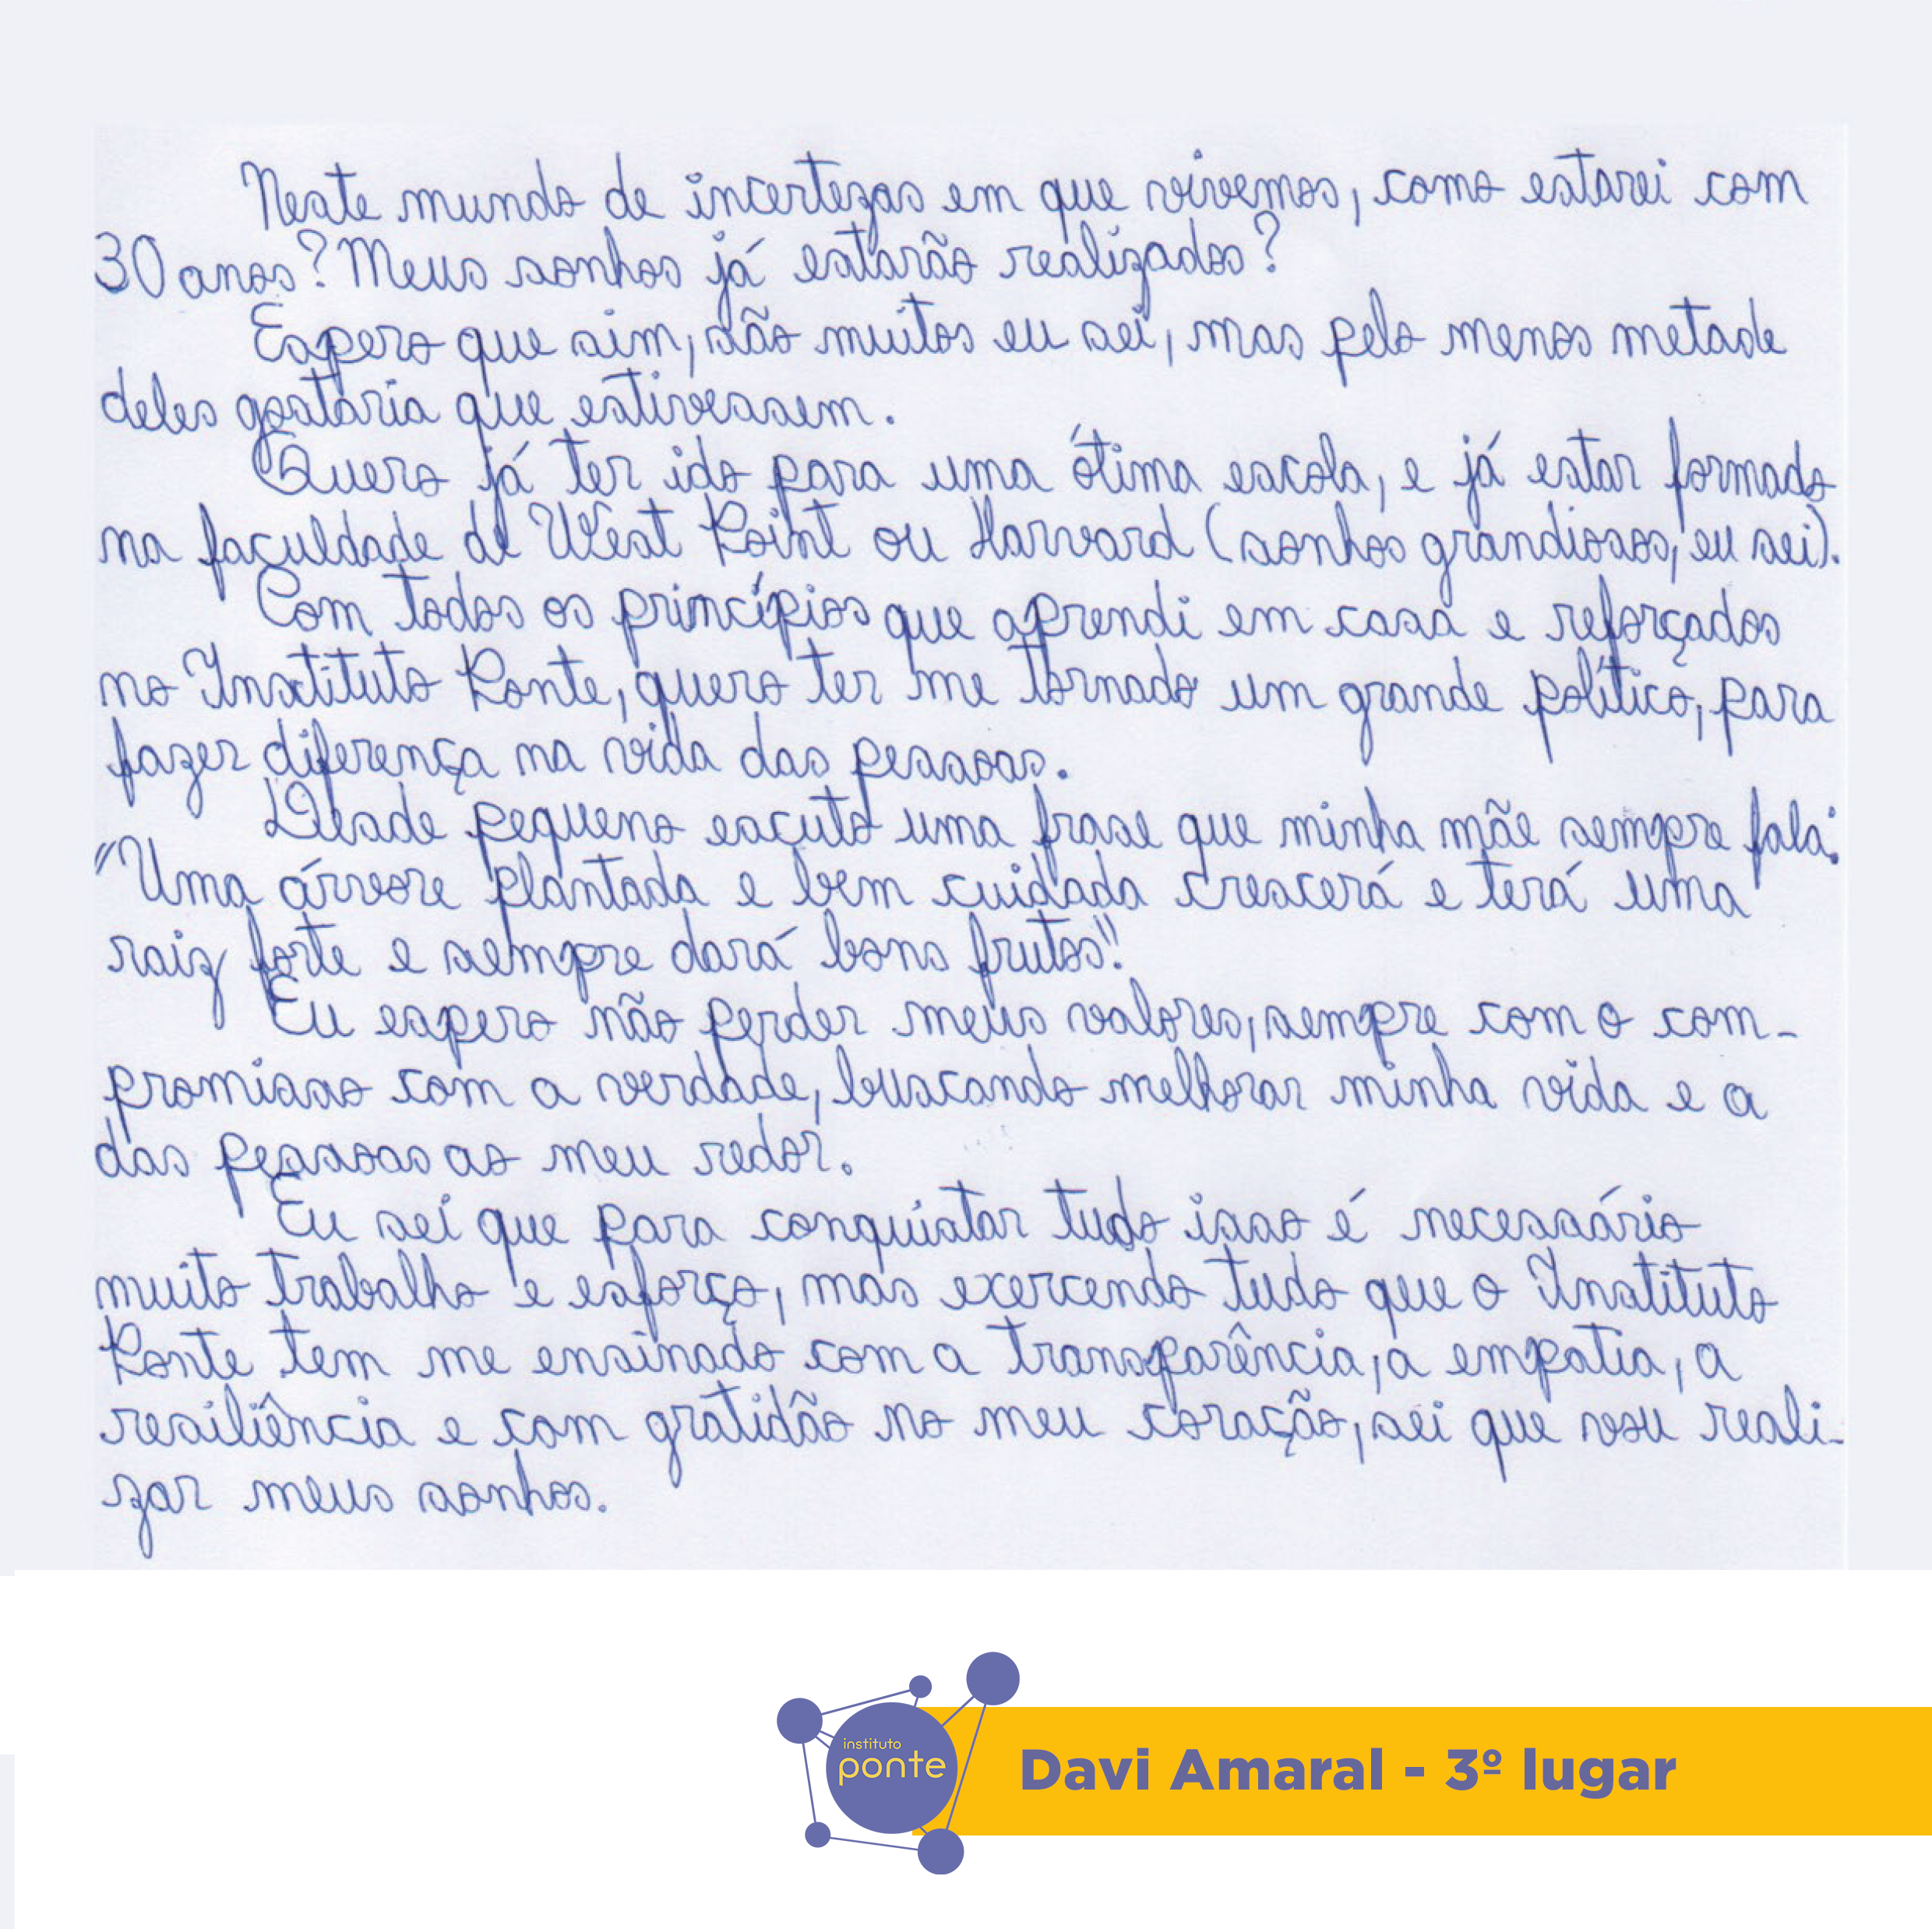 Neste mundo de incertezas em que vivemos, como estarei com
30 anos? Meus sonhos já estarão realizados?
Espero que sim, são muitos eu sei, mas pelo menos metade
deles gostaria que estivessem.
Quero já ter ido para uma ótima escola, e já estar formado
na faculdade de West Point ou Harvard (sonhos grandiosos, eu sei).
Com todos os princípios que aprendi em casa e reforçados
no Instituto Ponte, quero ter me tornado um grande político, para
fazer diferença na vida das pessoas.
Desde pequeno escuto uma frase que minha mãe sempre fala:
"Uma árvore plantada e bem cuidada crescerá e terá uma
raiz forte e sempre dará bons frutos".
Eu espero não perder meus valores, sempre com o com-
promisso com a verdade, buscando melhorar minha vida e a
das pessoas ao meu redor.
Eu sei que para conquistar tudo isso é necessário
muito trabalho e esforço, mas exercendo tudo que o Instituto
Ponte tem me ensinado com a transparência, a empatia, a
resiliência e com gratidão no meu coração, sei que vou reali-
zar meus sonhos.
instituto
ponte
Davi Amaral - 3º lugar